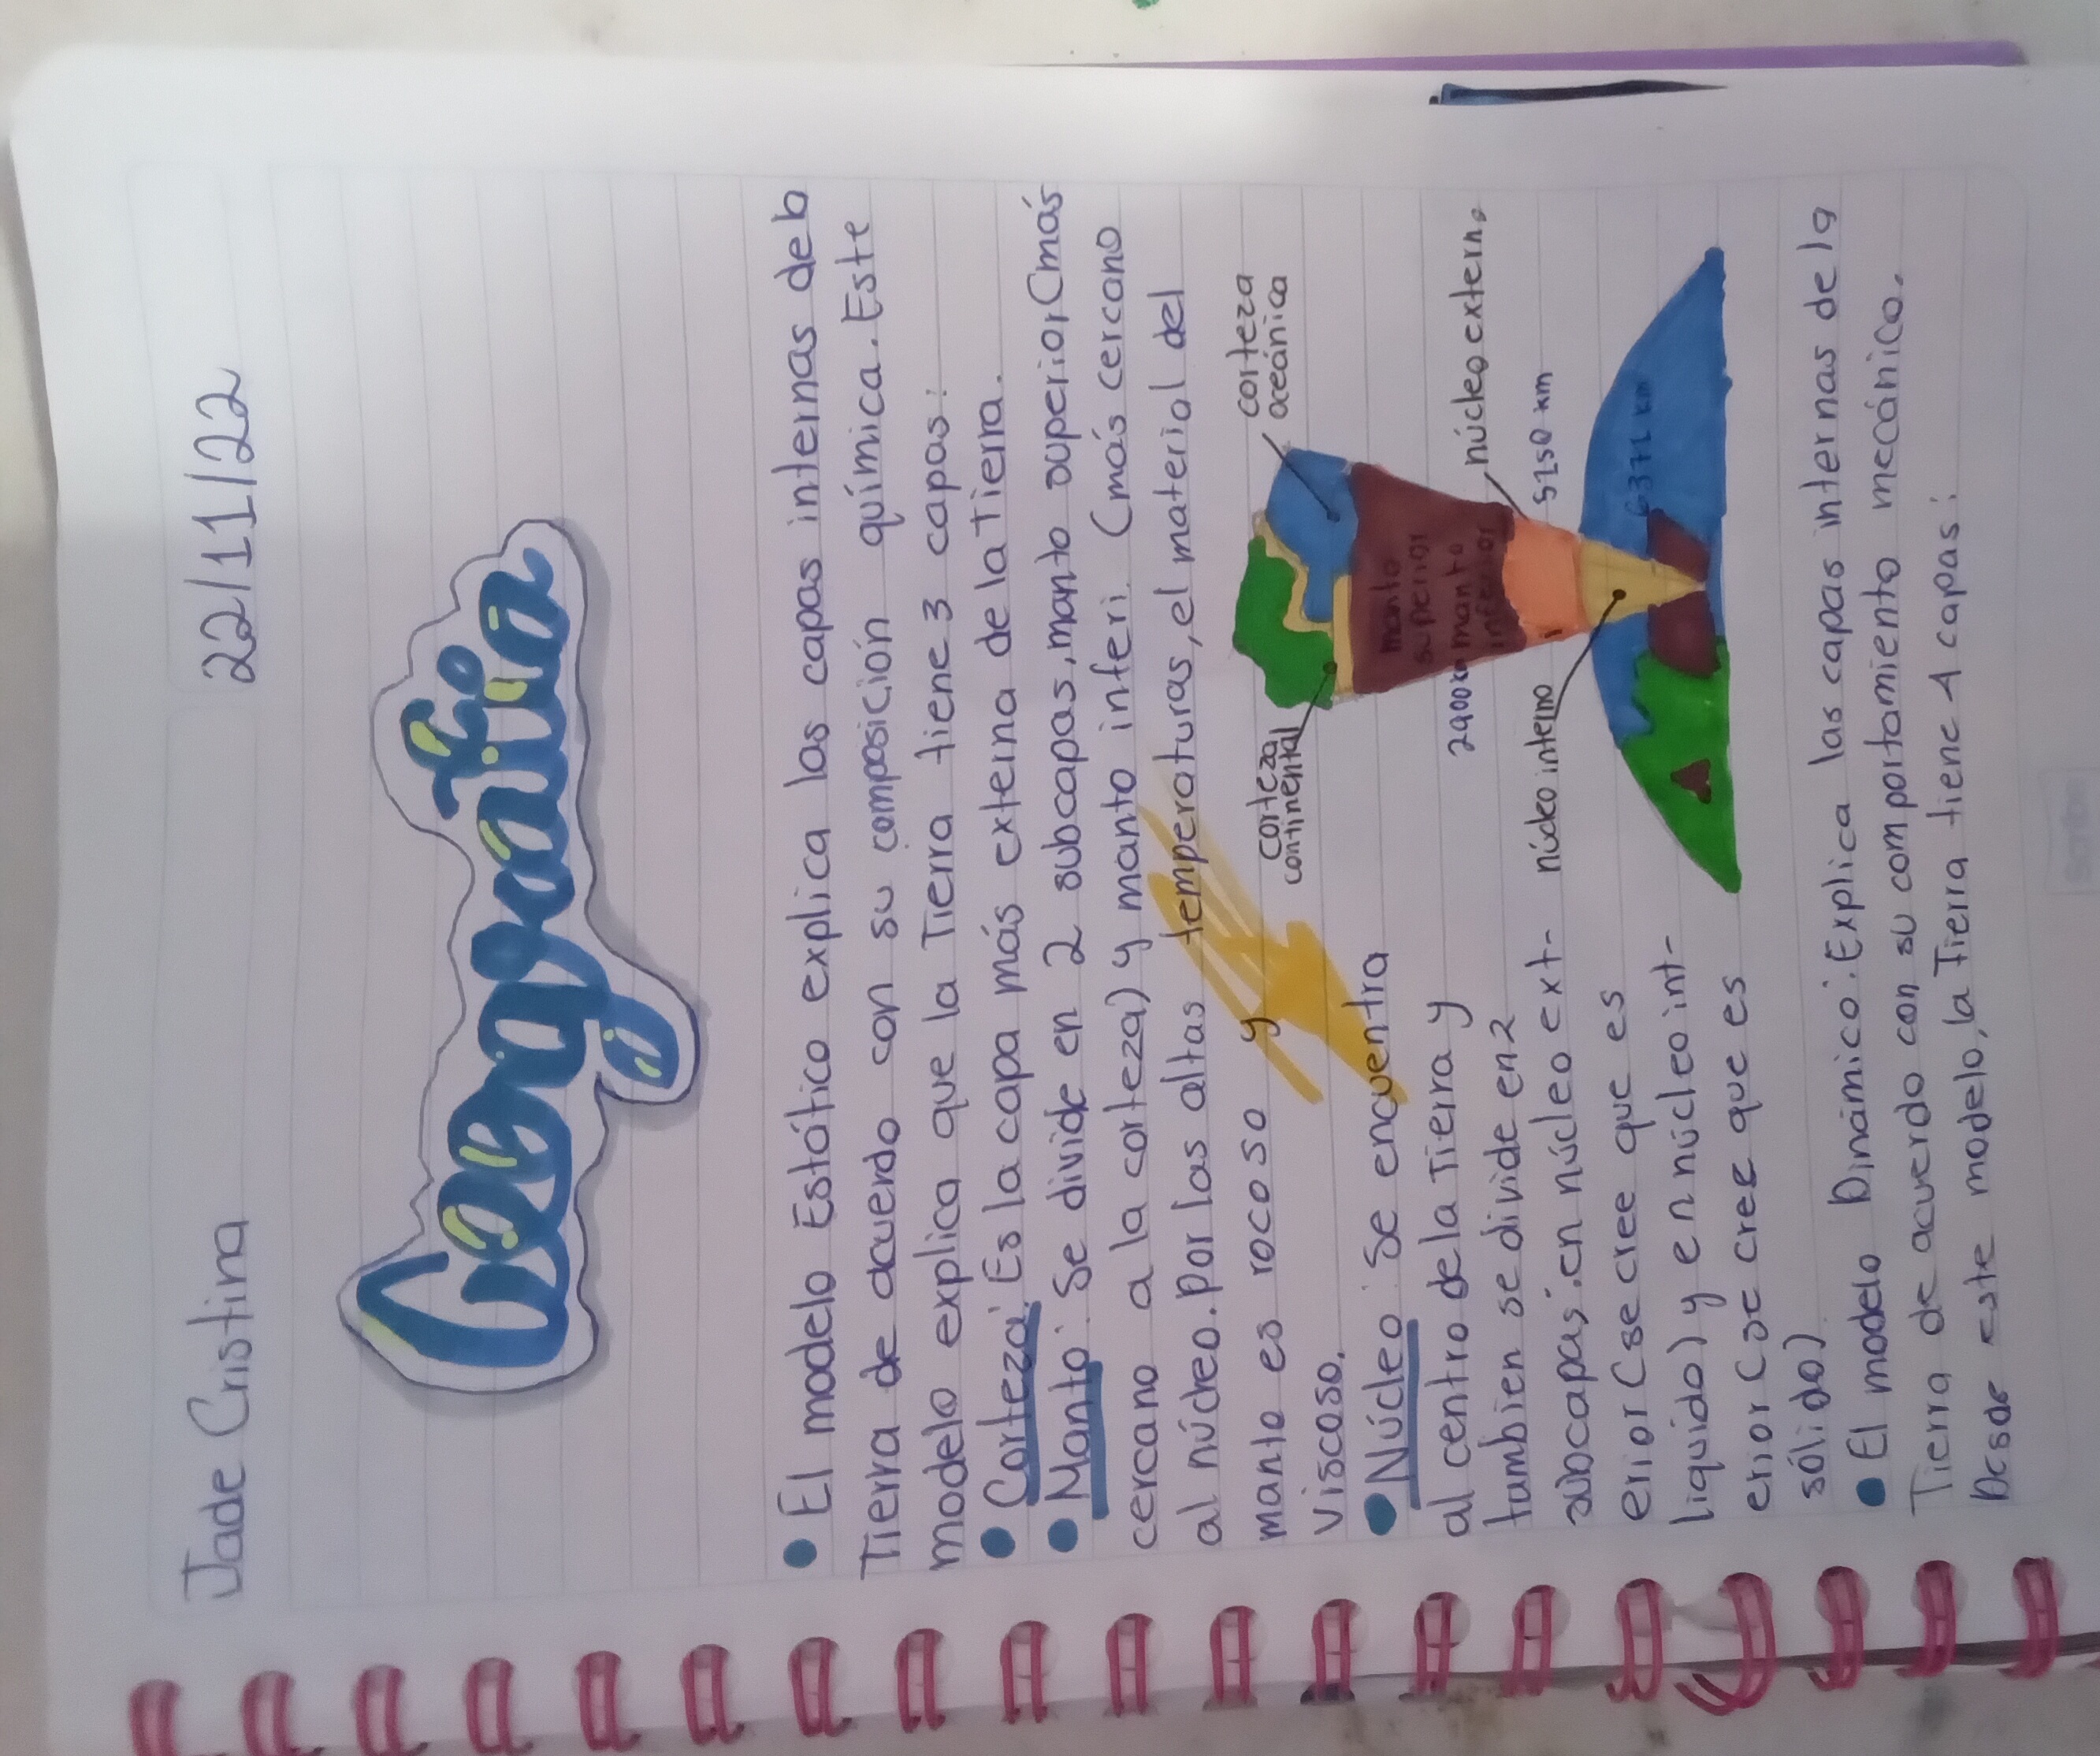 Jade Cristina 22/11/22
Geografía
• El modelo Estático explica las capas internas de la
Tierra de acuerdo con su composición química. Este
modelo explica que la Tierra tiene 3 capas:
• Corteza: Es la capa más externa de la Tierra.
• Manto: Se divide en 2 subcapas, manto superior (más
cercano a la corteza) y manto inferi. (más cercano
al núcleo. Por las altas temperaturas, el material del
manto es rocoso y
viscoso.
• Núcleo: Se encuentra
al centro de la Tierra y
tambien se divide en 2
subcapas: en núcleo ext-
erior (se cree que es
liquido) y en núcleo int-
erior (se cree que es
sólido)
corteza
oceánica
corteza
continental
manto
superior
manto
inferior
2900 km
núcleo externo
5150 km
núcleo interno
6371 km
• El modelo Dinámico: Explica las capas internas de la
Tierra de acuerdo con su comportamiento mecánico.
Desde este modelo, la Tierra tiene 4 capas: